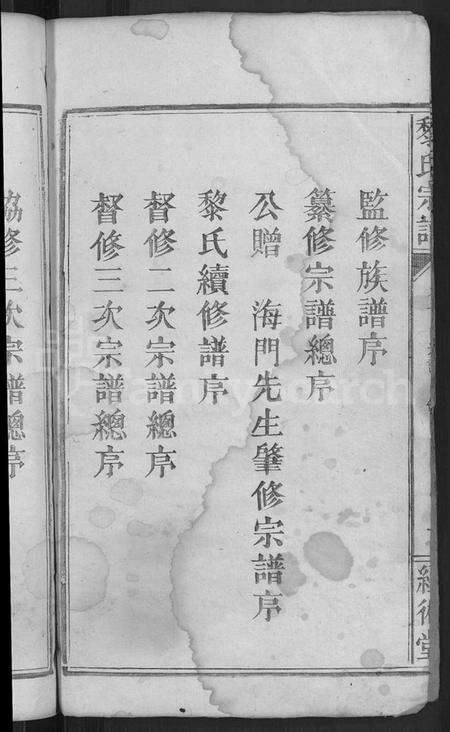 黎氏宗譜
經術堂
監修族譜序
纂修宗譜總序
公贈 海門先生肇修宗譜序
黎氏續修譜序
督修二次宗譜總序
督修三次宗譜總序
協修三次宗譜總序